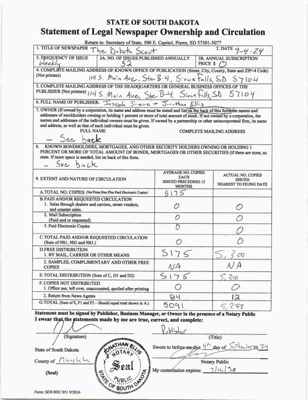 STATE OF SOUTH DAKOTA
Statement of Legal Newspaper Ownership and Circulation
Return to: Secretary of State, 500 E. Capitol, Pierre, SD 57501-5077
1. TITLE OF NEWSPAPER The Dakota Scout 2. DATE 9-4-24
3. FREQUENCY OF ISSUE Weekly
3A. NO. OF ISSUES PUBLISHED ANNUALLY 52
3B. ANNUAL SUBSCRIPTION PRICE $ 0
4. COMPLETE MAILING ADDRESS OF KNOWN OFFICE OF PUBLICATION (Street, City, County, State and ZIP+4 Code) (Not printers)
114 S. Main Ave, Ste B-4, Sioux Falls, SD 57104
5. COMPLETE MAILING ADDRESS OF THE HEADQUARTERS OR GENERAL BUSINESS OFFICES OF THE PUBLISHER (Not printers)
114 S. Main Ave, Ste. B-4, Sioux Falls, SD 57104
6. FULL NAME OF PUBLISHER: Joseph Sneve + Jonathan Ellis
7. OWNER (If owned by a corporation, its name and address must be stated and listed on the back of this form the names and addresses of stockholders owning or holding 1 percent or more of total amount of stock. If not owned by a corporation, the names and addresses of the individual owners must be given. If owned by a partnership or other unincorporated firm, its name and address, as well as that of each individual must be given.
FULL NAME COMPLETE MAILING ADDRESS
- See back
8. KNOWN BONDHOLDERS, MORTGAGES, AND OTHER SECURITY HOLDERS OWNING OR HOLDING 1 PERCENT OR MORE OF TOTAL AMOUNT OF BONDS, MORTGAGES OR OTHER SECURITIES (If there are none, so state. If more space is needed, list on back of this form.
- See back
9. EXTENT AND NATURE OF CIRCULATION
AVERAGE NO. COPIES EACH ISSUED PRECEDING 12 MONTHS
ACTUAL NO. COPIES ISSUED NEAREST TO FILING DATE
A. TOTAL NO. COPIES (Net Press Run Plus Paid Electronic Copies) 5175
B. PAID AND/OR REQUESTED CIRCULATION
1. Sales through dealers and carriers, street vendors, and counter sales. 0 0
2. Mail Subscription (Paid and or requested) 0 0
3. Paid Electronic Copies 0 0
C. TOTAL PAID AND/OR REQUESTED CIRCULATION (Sum of 9B1, 9B2 and 9B3.) 0 0
D. FREE DISTRIBUTION
1. BY MAIL, CARRIER OR OTHER MEANS 5175 5,300
2. SAMPLES, COMPLIMENTARY AND OTHER FREE COPIES NA NA
E. TOTAL DISTRIBUTION (Sum of C, D1 and D2) 5175 5,300
F. COPIES NOT DISTRIBUTED
1. Office use, left over, unaccounted, spoiled after printing 0 0
2. Return from News Agents 84 12
G. TOTAL (Sum of E, F1 and F2 - Should equal total shown in A.) 5091 5,288
Statement must be signed by Publisher, Business Manager, or Owner in the presence of a Notary Public
I swear that the statements made by me are true, correct, and complete:
Publisher
(Signature) (Title)
State of South Dakota
County of Minnehaha
Sworn to before me this 4th day of September 20 24
JONATHAN ELLIS
NOTARY
Seal
PUBLIC
STATE OF SOUTH DAKOTA
Notary Public
My commission expires:
Form: SOS REC 051 9/2016